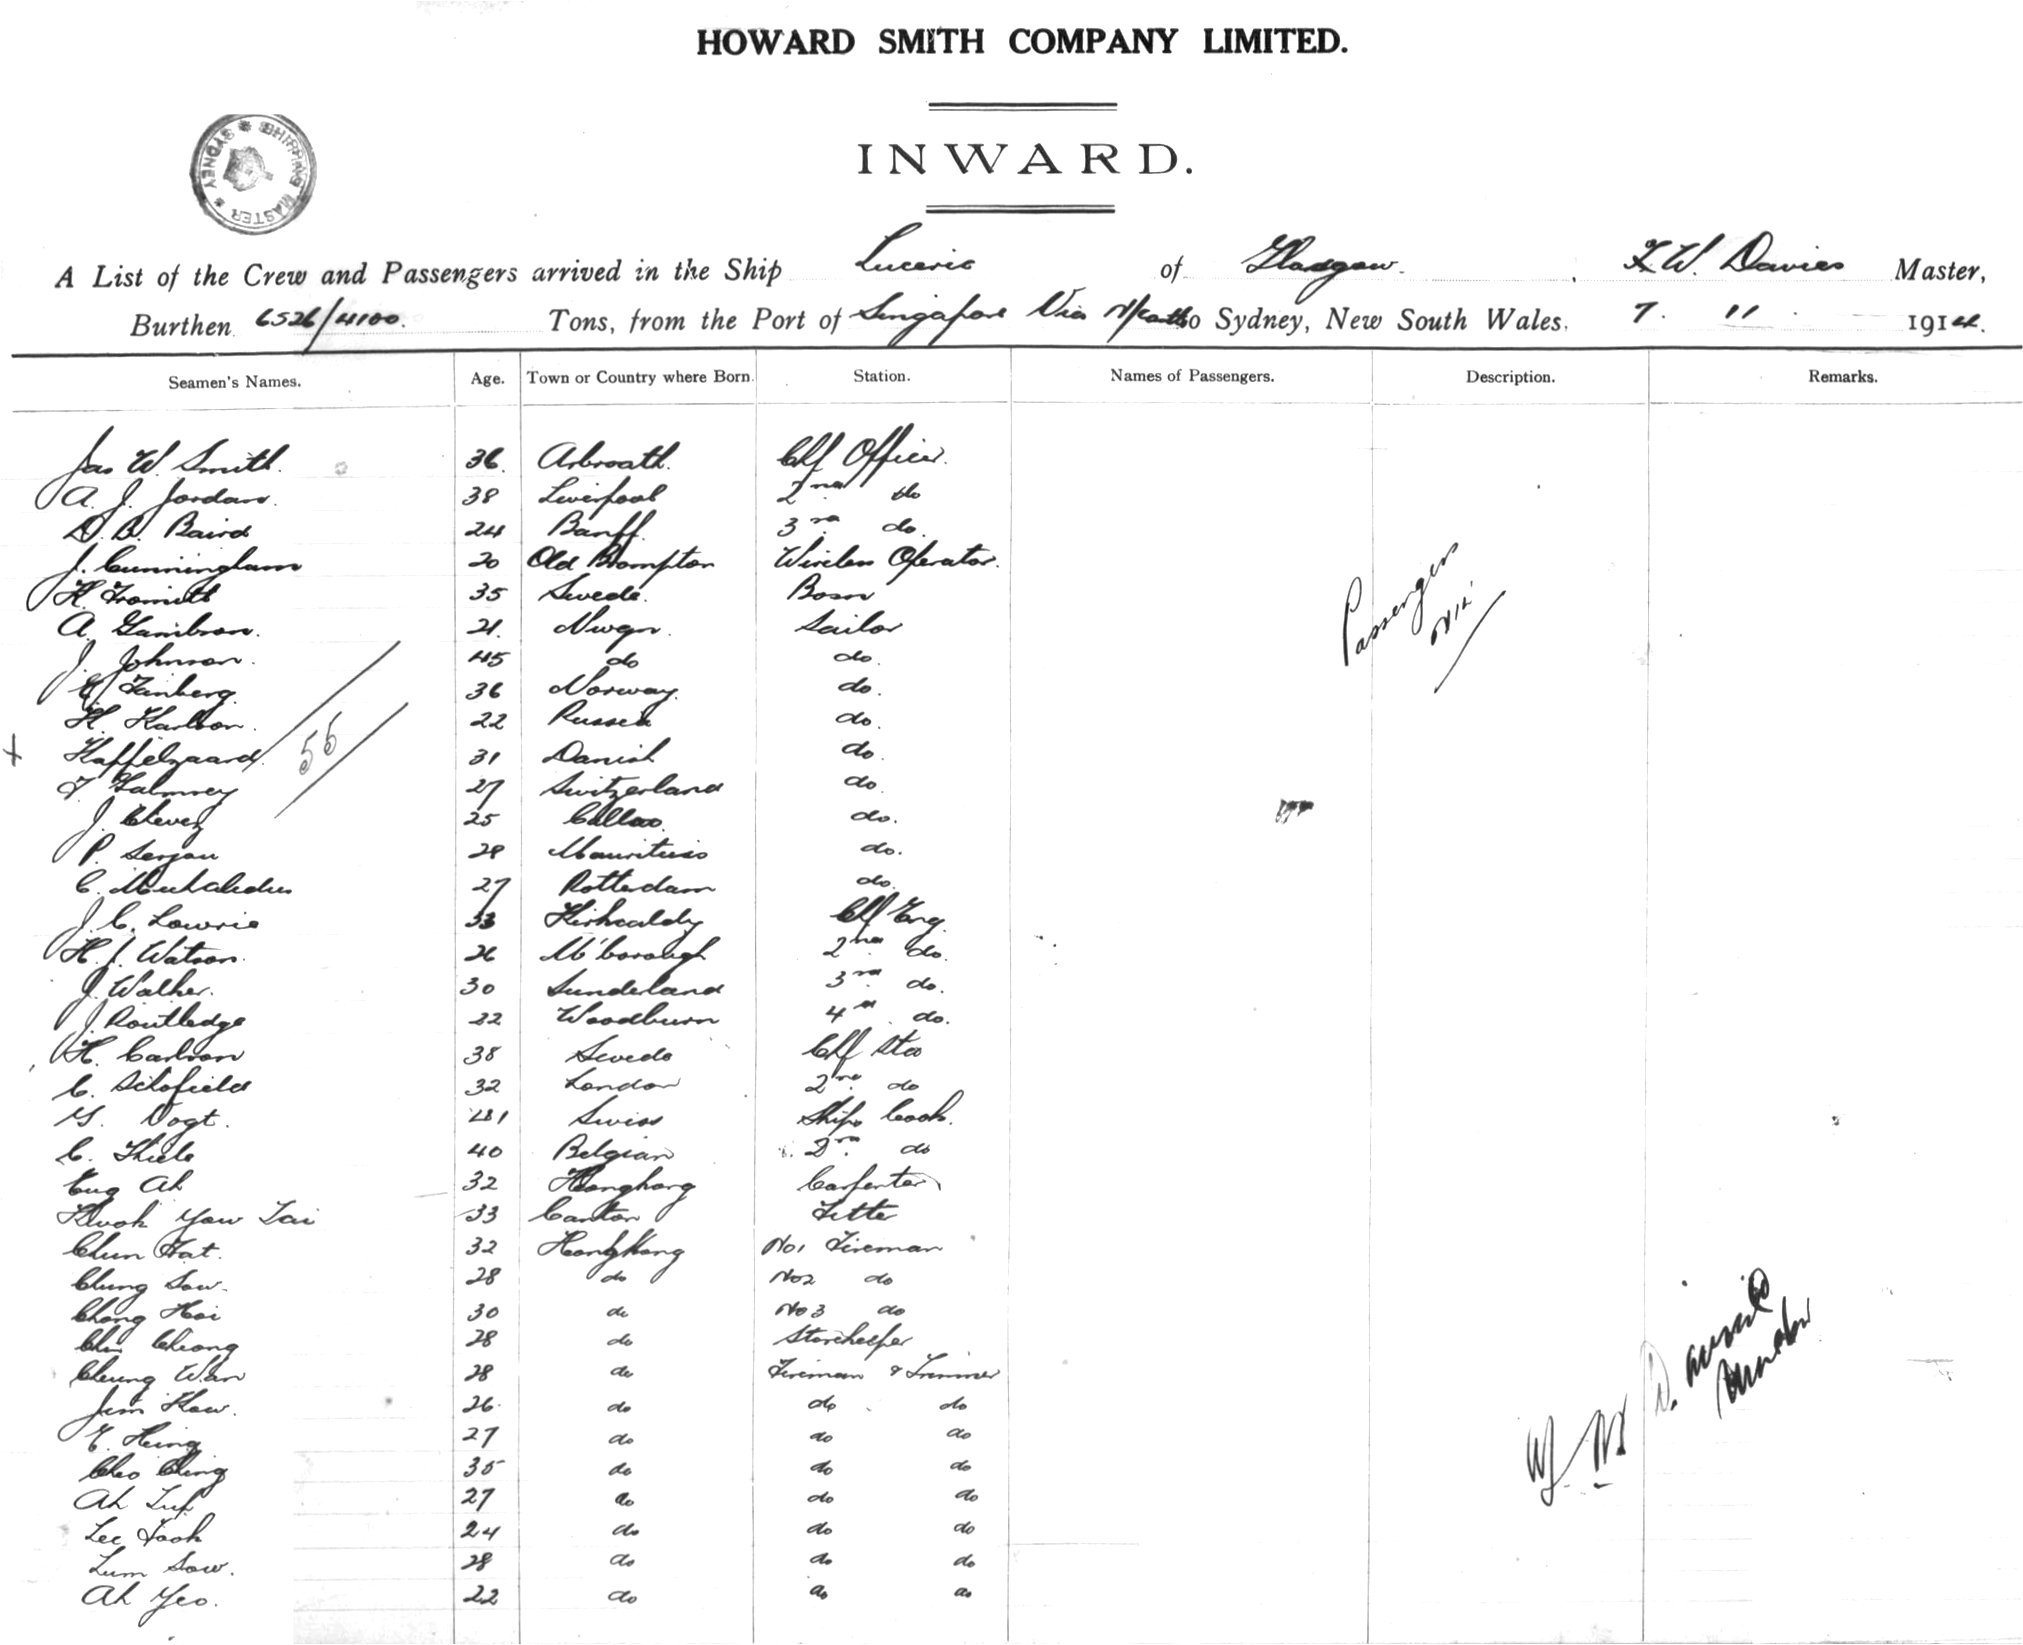 HOWARD SMITH COMPANY LIMITED.
INWARD.
SHIPPING MASTER * SYDNEY *
A List of the Crew and Passengers arrived in the Ship Luceric of Glasgow. W. Davies Master,
Burthen 6526/4100. Tons, from the Port of Singapore Via to Sydney, New South Wales, 7. 11. 1914.
Seamen's Names. Age. Town or Country where Born. Station. Names of Passengers. Description. Remarks.
Jas W. Smith. 36. Arbroath. Chf Officer.
A. J. Jordan. 38 Liverpool 2nd do
D. B. Baird 24 Banff. 3rd do.
J. Cunningham 20 Old Brompton Wireless Operator.
H. 35 Swede. Bosn
A. 21. Nwgn. Sailor
J. Johnson. 45 do do.
36 Norway. do.
H. Karlson. 22 Russia do.
+ 31 Danish do.
27 Switzerland do.
J. Chevez 25 Callao. do.
P. 28 Mauritius do.
C. 27 Rotterdam do.
J. C. Lowrie 33 Kirkcaldy Chf Eng.
H. J. Watson. 26 M'borough 2nd do.
J. Walker. 30 Sunderland 3rd do.
J. Routledge 22 Woodburn 4th do.
H. Carlson 38 Swede Chf Std
C. Schofield 32 London 2nd do
G. Vogt. 41 Swiss Ships Cook.
C. Thiele 40 Belgian 2nd do
Ah 32 Hongkong Carpenter
Kwok Yow Tai 33 Canton Fitter
Chun Fat. 32 Hongkong No1 Fireman
Chung Sow. 28 do No2 do
Chong Hoi 30 do No3 do
Cheong 28 do Storekeeper
Cheung Wan 28 do Fireman & Trimmer
Jim How. 26. do do do
Hing 27 do do do
Cheo Ching 35 do do do
Ah 27 do do do
Lee Fook 24 do do do
Lum Sow. 28 do do do
Ah Yeo. 22 do do do
56
Passengers
Nil
Master